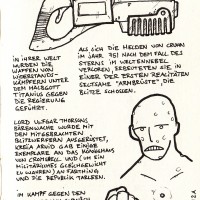 IN IHRER WELT
WURDEN DIE
WAFFEN VON
WIDERSTANDS-
KÄMPFERN UNTER
DEM HALBGOTT
TITANIUS GEGEN
DIE REGIERUNG
GEFÜHRT.
ALS SICH DIE HELDEN VON
IM JAHR 751 NACH DEM FALL DES
STERNS IM WELTENNEBEL
VERLOREN, ERBEUTETEN SIE IN
EINER DER ERSTEN REALITÄTEN
SELTSAME "ARMBRÜSTE", DIE
BLITZE SCHOSSEN.
LORD ULFGAR THORSONS
BÄRENWACHE WURDE MIT
DEN MITGEBRACHTEN
BLITZWERFERN AUSGERÜSTET,
KREIA ARVID GAB EINIGE
EXEMPLARE AN DAS KÖNIGSHAUS
VON CROMBELL UND (UM EIN
MILITÄRISCHES GLEICHGEWICHT
ZU WAHREN) AN FASTHING
UND DIE REPUBLIK TARLEEN.
IM KAMPF GEGEN DEN